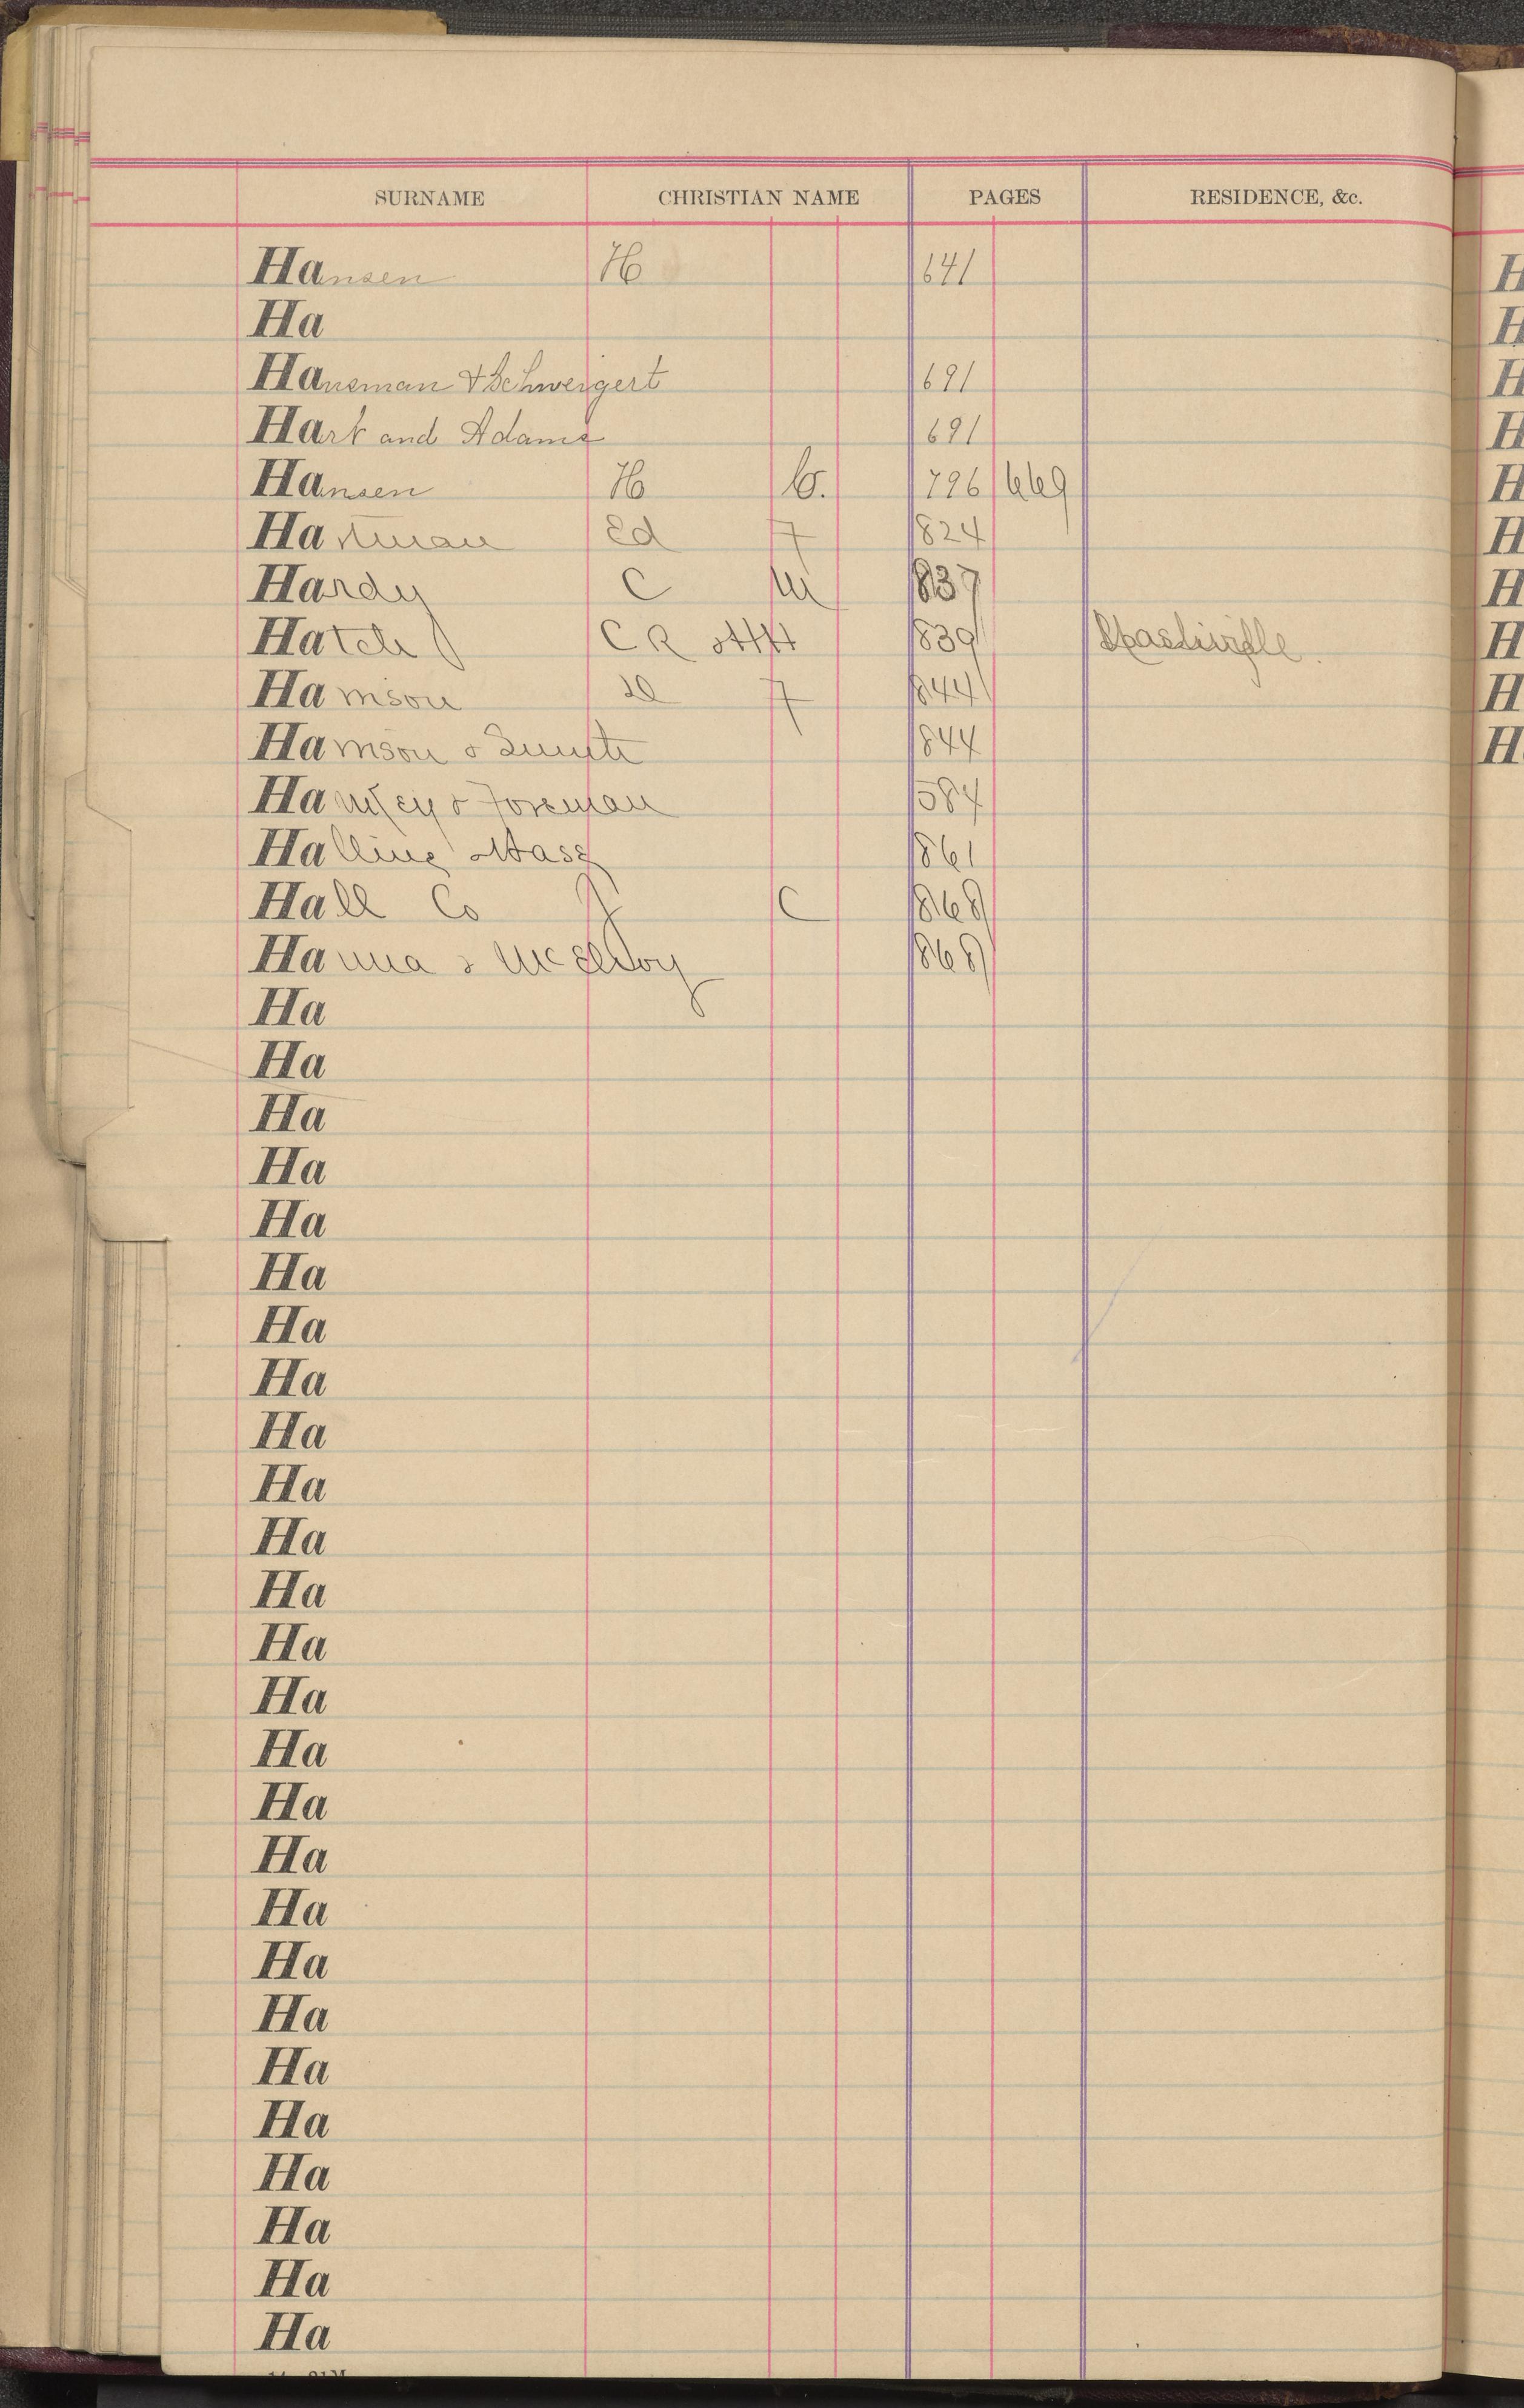 SURNAME CHRISTIAN NAME PAGES RESIDENCE, &c.
Hansen H 641
Ha
Hansman & Schweigert 691
Hart and Adams 691
Hansen H C. 796 669
Hartman Ed F 824
Hardy C M 837
Hatch C R 839 Nashville
Ha F 844
Ha 844
Ha & Foreman 584
Halling & Hass 861
Hall Co J C 868
Hanna & McElroy 868
Ha
Ha
Ha
Ha
Ha
Ha
Ha
Ha
Ha
Ha
Ha
Ha
Ha
Ha
Ha
Ha
Ha
Ha
Ha
Ha
Ha
Ha
Ha
Ha
Ha
Ha